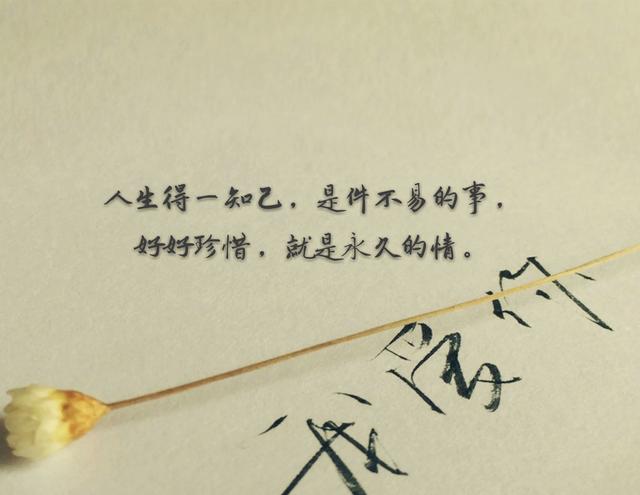 人生得一知己，是件不易的事，
好好珍惜，就是永久的情。